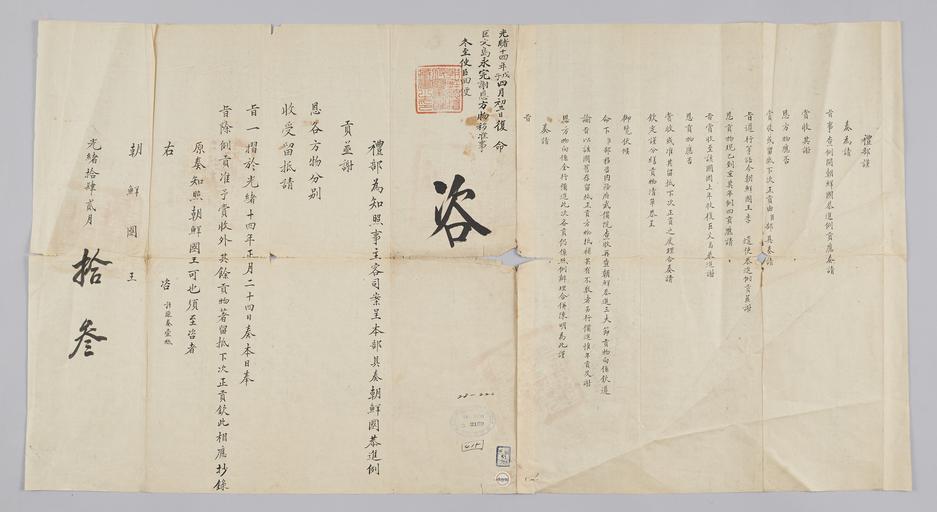 禮部謹
奏為請
旨事查例開朝鮮國恭進例貢應奏請
賞收其謝
恩方物應否
賞收或留抵下次正貢由臣部具奏請
旨遵行等語今朝鮮國王李 遣使恭進例貢並謝
恩貢物現已到京其年例四貢應請
旨賞收至該國因上年收復巨文島恭進謝
恩貢物應否
賞收或准其留抵下次正貢之處理合奏請
欽定謹分繕貢物清單恭呈
御覽伏候
命下臣部移咨內務府武備院查收再查朝鮮恭進三大節貢物向係欽遵
諭旨以該國舊存留抵正貢方物抵補其有不敷者另行備進惟年貢及謝
恩方物向係全行備進此次各貢仍係照例辦理合併陳明為此謹
奏請
旨
光緒十四年戊子四月初三日復 命
巨文島永完謝恩方物移准事
冬至使臣回便
咨
禮部為知照事主客司案呈本部具奏朝鮮國恭進例
貢並謝
恩各方物分別
收受留抵請
旨一摺於光緒十四年正月二十四日奏本日奉
旨除例貢准予賞收外其餘貢物著留抵下次正貢欽此相應抄錄
原奏知照朝鮮國王可也須至咨者
右 咨 計粘奏壹紙
朝鮮國王
光緒拾肆貳月
拾叁